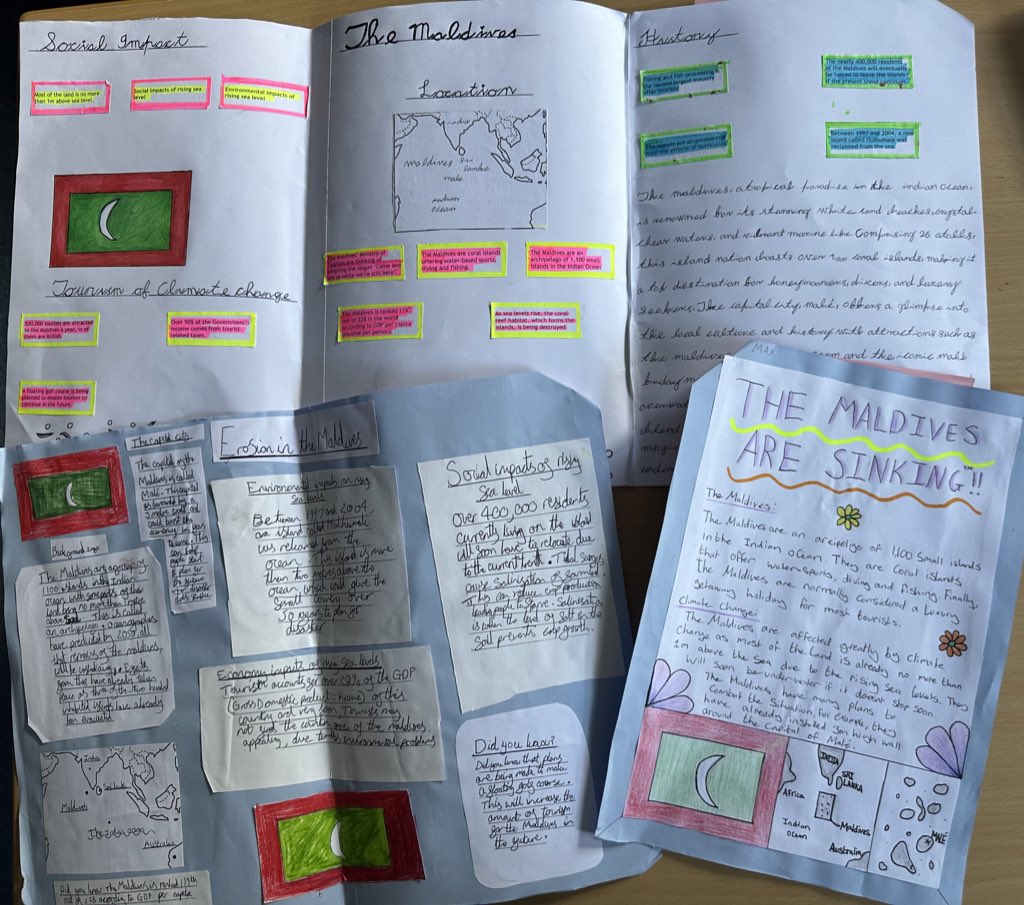 Social Impact
Most of the land is no more
than 1m above sea level.
Social impacts of rising sea
level
Environmental impacts of
rising sea level
Tourism of Climate change
500,000 tourists are attracted
to the Maldives a year, ¼ of
them are British
Over 90% of the Government's
income comes from tourist-
related taxes.
A floating golf course is being
planned to enable tourism to
continue in the future.
The Maldives
Location
india
maldives
Sri
lanka
male
indian
ocean
The Maldives' Ministry of
Tourism are thinking of
adopting the slogan "Come and
see us while we're still here".
The Maldives are coral islands
offering water-based sports,
diving and fishing.
The Maldives are an
archipelago of 1,100 small
islands in the Indian Ocean
The Maldives is ranked 119th
out of 228 in the world
according to GDP per capita
(income per person).
As sea levels rise, the coral
reef habitat, which forms the
islands, is being destroyed.
History
Fishing and fish-processing is
the second largest industry
after tourism
The nearly 400,000 residents
of the Maldives will eventually
be forced to leave the islands
if the present trend continues.
The islands are at greater risk
from the effects of hurricanes
Between 1997 and 2004, a new
island called Hulhumale was
reclaimed from the sea.
The maldives, a tropical paradise in the indian ocean,
is renowned for its stunning white sand beaches, crystal-
clear waters, and vibrant marine life. Comprising 26 atolls,
this island nation boasts over 1000 coral islands, making it
a top destination for honeymooners, divers, and luxury
seekers. The capital city, malé, offers a glimpse into
the local culture and history with attractions such as
the maldives and the iconic malé
friday m
The capital city
The capital of the
Maldives is called
Malé. This capital
is surrounded by a
3 metre wall and
could boost the
economy in years
to come. This
Background info
The Maldives are a group of
1100 islands in the Indian
Ocean with some parts of their
land being no more than 1 metre
above sea. This is called
an archipelago. Oceanographers
have predicted by 2050, all
that remains of the maldives,
will be washed away. Effects
from this have already taken
place as three of the two hundred
inhabited islands have already
been evacuated
India
Sri Lanka
Maldives
Indian ocean
Australia
Did you know the Maldives is ranked 119th
out of 228 according to GDP per capita
Erosion in the Maldives
Environmental impacts on rising
Sea levels
Between 1997 and 2004,
an island called Hulhumale
was reclaimed from the
ocean. This island is more
than two metres above the
ocean, which could give the
small country over
50 years to plan for
disaster
Economy impacts on rising Sea levels
Tourism accounts for over 28% of the GDP
(Gross Domestic product-income) of this
country and very soon Tourists may
not find the crystal ones of the maldives
appealing, due to environmental problems
Social impacts of rising
Sea level
Over 400,000 residents
currently living on the island
will soon have to relocate due
to the current trend. Tidal surges
cause Salinisation of farmland.
This can reduce crop production
leading people to starve. Salinisation
is when the level of salt in the
Soil prevents crop growth.
Did you know?
Did you know that plans
are being made to make
a floating golf course.
This will increase the
amount of tourism
for the Maldives in
the future.
MAX
THE MALDIVES
ARE SINKING!!
The Maldives:
The Maldives are an arcipeligo of 1,100 small islands
in the Indian Ocean. They are coral islands
that offer watersports, diving and fishing. Finally,
the Maldives are normally considered a luxury
getaway holiday for most tourists.
Climate change:
The Maldives are affected greatly by climate
change as most of the land is already no more than
1m above the sea due to the rising sea levels. They
will soon be underwater if it doesnt stop soon.
The Maldives, have many plans, to
combat the situation, for example, they
have already installed 3m high wall
around the capital of Malé.
Africa
INDIA
SRI
LANKA
Indian
Ocean
Maldives
Australia
MALÉ